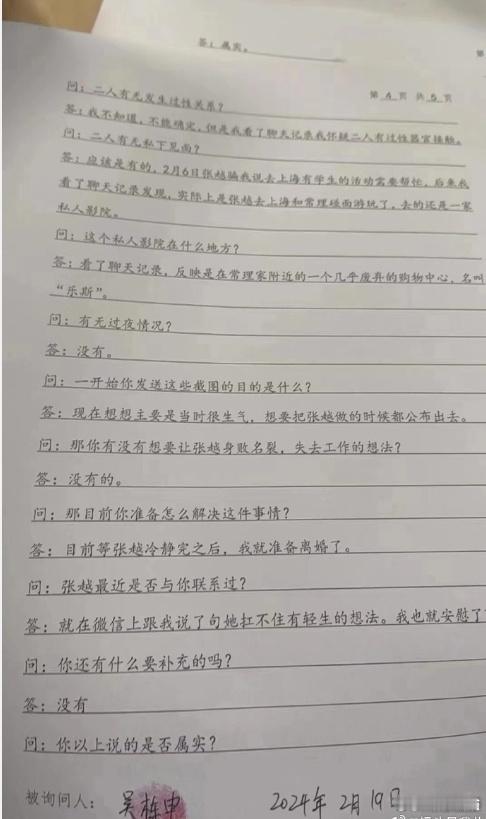 答：属实。
第
第 4 页 共 5 页
问：二人有无发生过性关系？
答：我不知道，不能确定，但是我看了聊天记录我怀疑二人有过性器官接触。
问：二人有无私下见面？
答：应该是有的，2月6日张越骗我说去上海有学生的活动需要帮忙，后来我
看了聊天记录发现，实际上是张越去上海和常理碰面游玩了，去的还是一家
私人影院。
问：这个私人影院在什么地方？
答：看了聊天记录，反映是在常理家附近的一个几乎废弃的购物中心，名叫
“乐斯”。
问：有无过夜情况？
答：没有。
问：一开始你发送这些截图的目的是什么？
答：现在想想主要是当时很生气，想要把张越做的时候都公布出去。
问：那你有没有想要让张越身败名裂，失去工作的想法？
答：没有的。
问：那目前你准备怎么解决这件事情？
答：目前等张越冷静完之后，我就准备离婚了。
问：张越最近是否与你联系过？
答：就在微信上跟我说了句她扛不住有轻生的想法。我也就安慰了
问：你还有什么要补充的吗？
答：没有
问：你以上说的是否属实？
被询问人：吴栋申 2024年2月19日